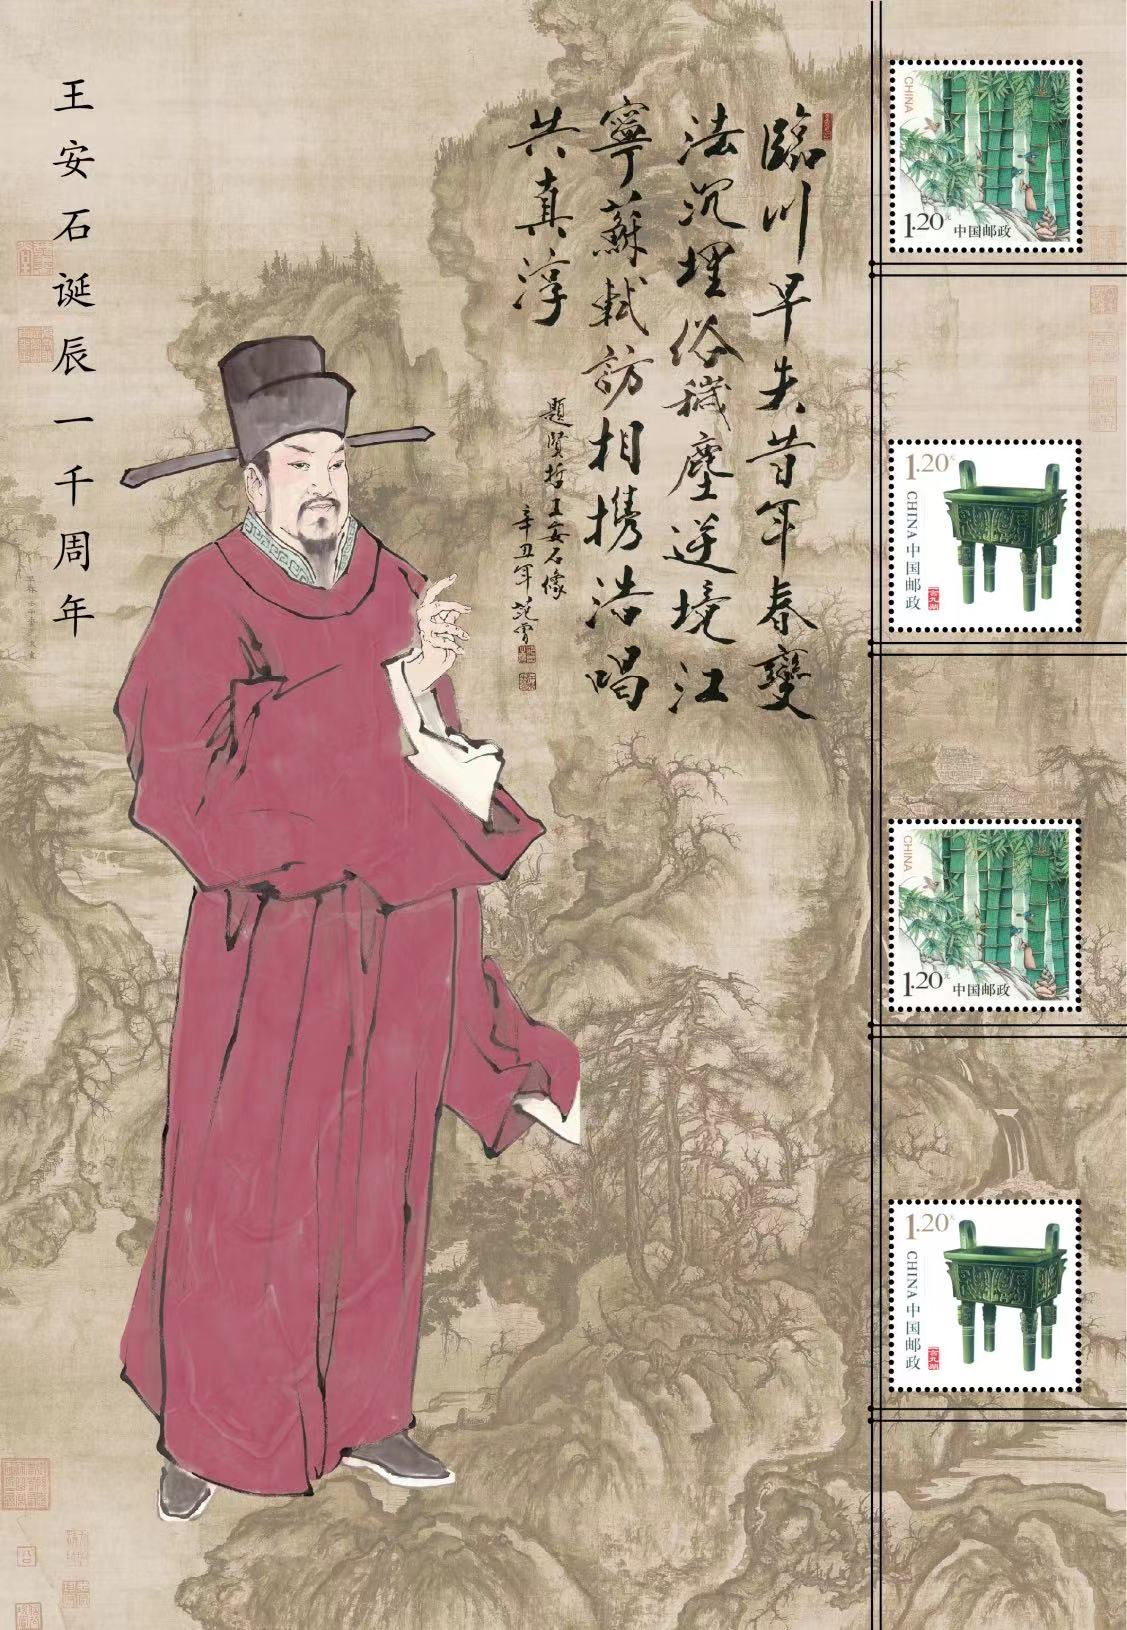 王安石诞辰一千周年
臨川早失昔年春變
法沉埋俗穢塵逆境江
寧蘇軾訪相攜浩唱
共真淳
題賢哲王安石像
辛丑年
CHINA
1.20元
中国邮政
1.20元
CHINA中国邮政
CHINA
1.20元
中国邮政
1.20元
CHINA中国邮政